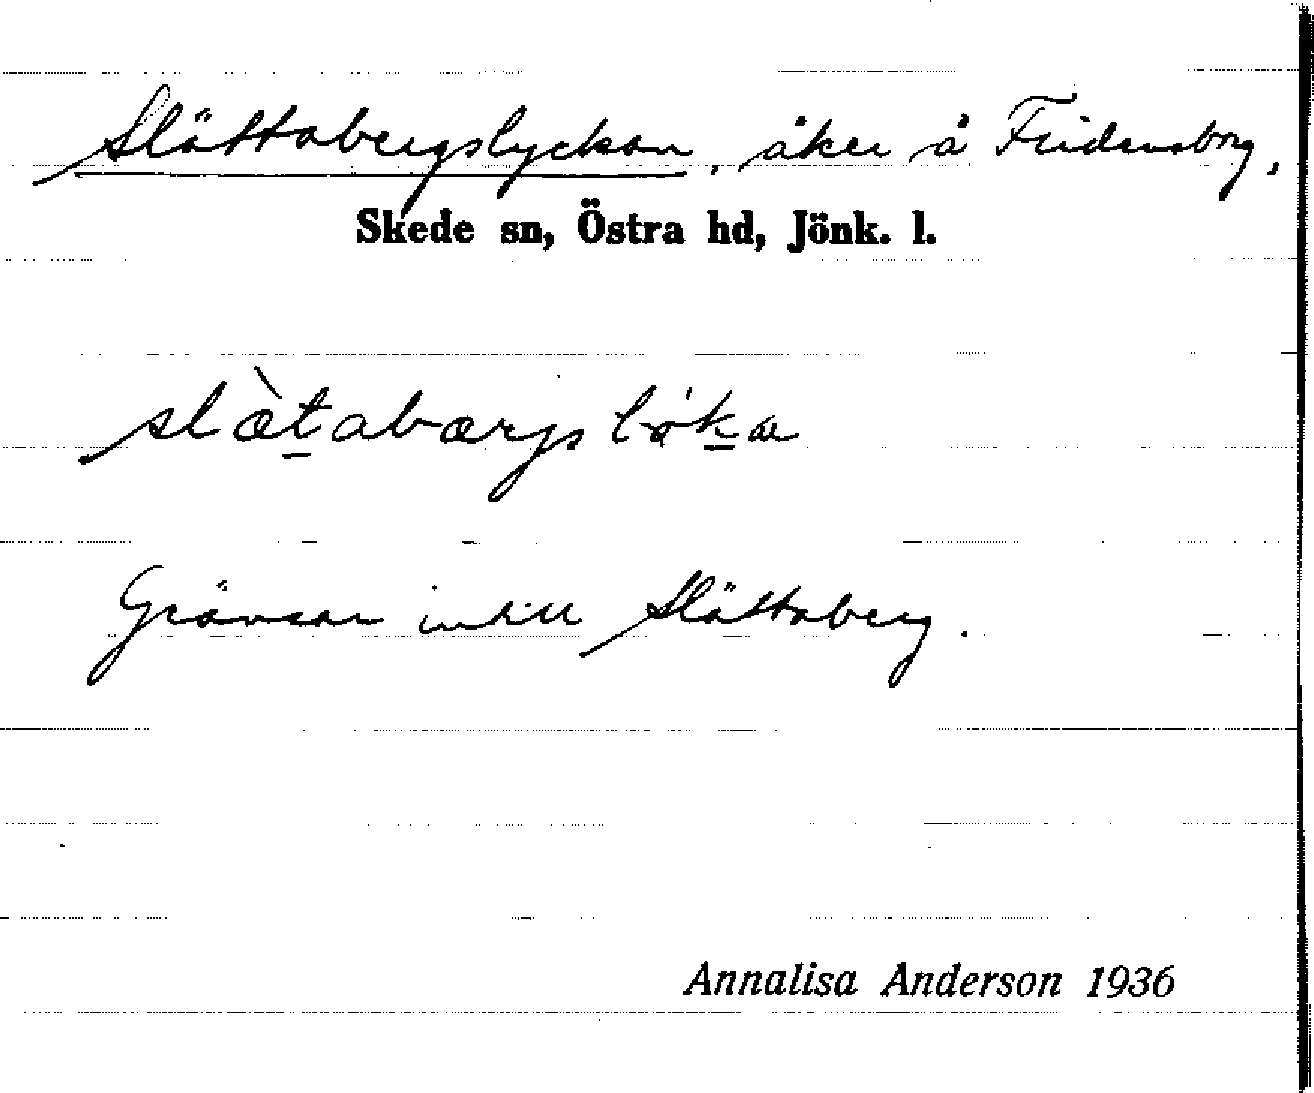 Slättabergslyckan, åker å Fridensborg,
Skede sn, Östra hd, Jönk. l.
slæ̀t̠abærjs
Gränsar intill Slättaberg.
Annalisa Anderson 1936